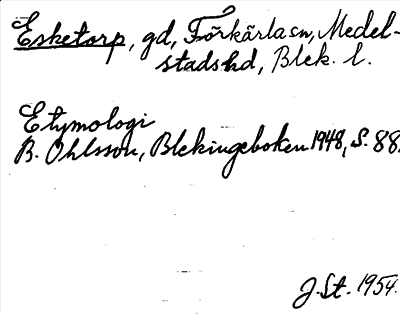 Esketorp, gd, Förkärla sn, Medel-
stads hd, Blek. l.
Etymologi
B. Ohlsson, Blekingeboken 1948, s. 88.
J. St. 1954.